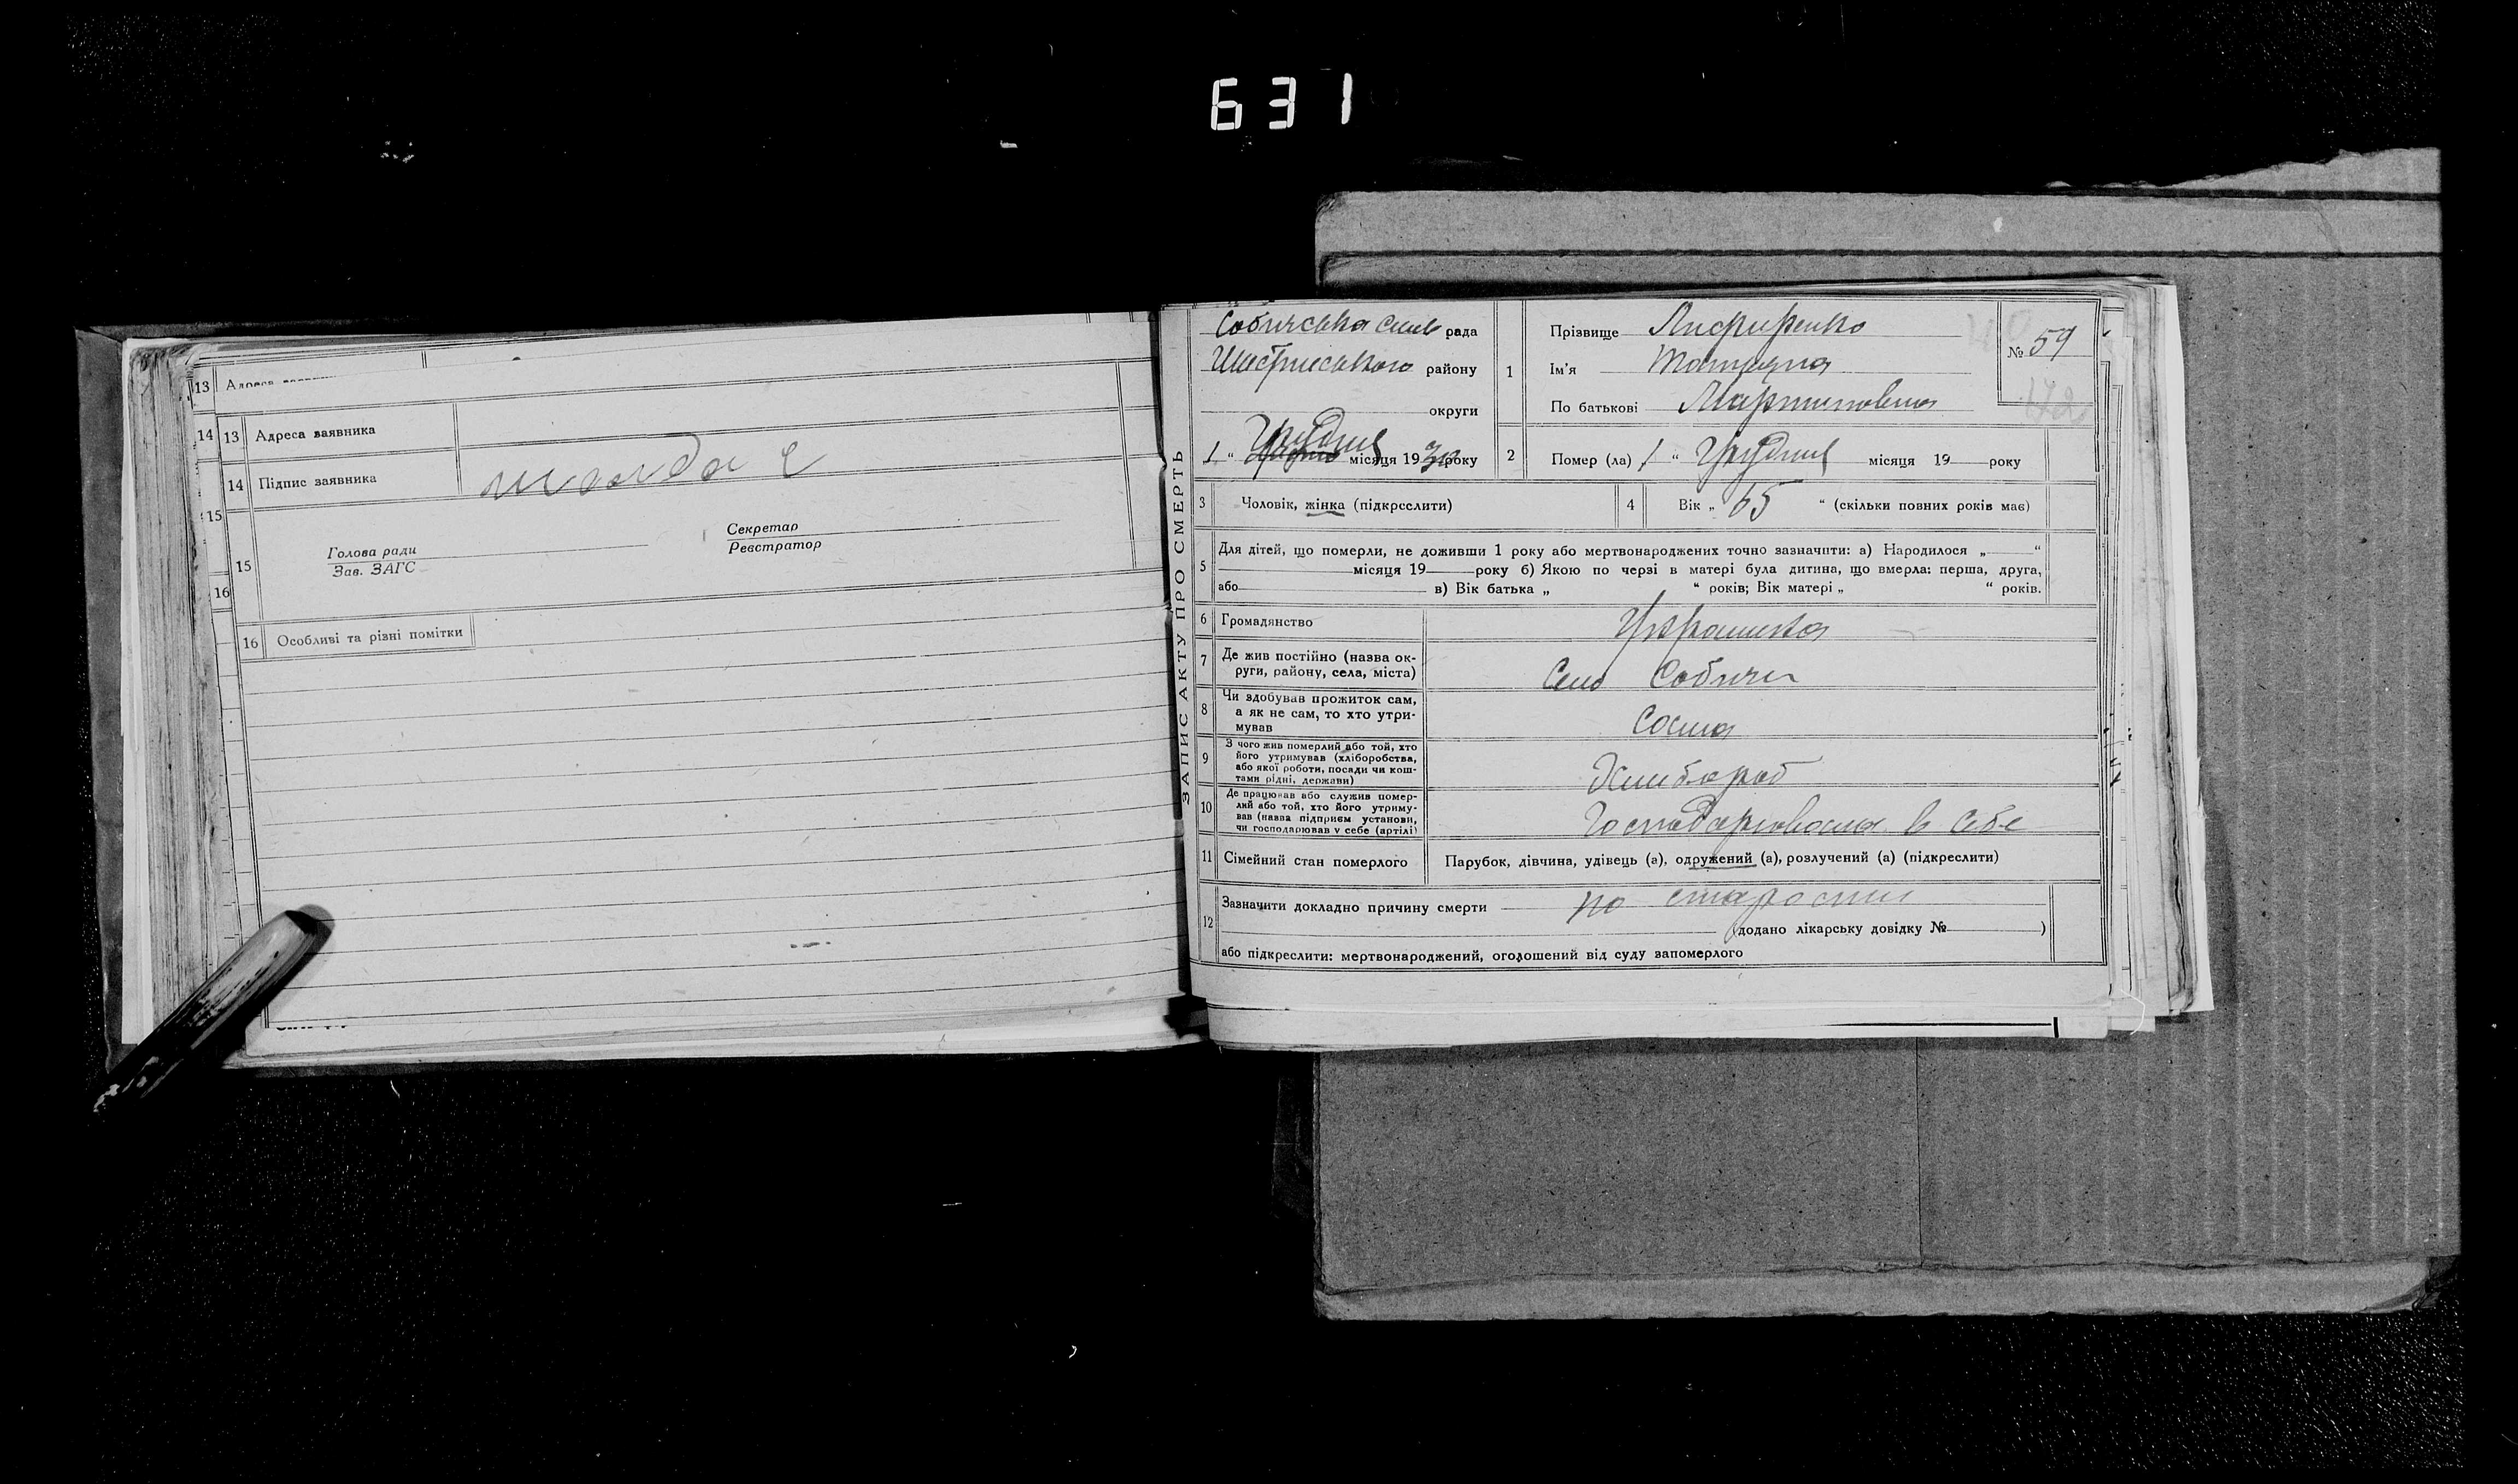 631
13 Адреса
14 13 Адреса заявника
14 Підпис заявника
15
15 Голова ради
Зав. ЗАГС
Секретар
Реєстратор
16
16 Особливі та різні помітки
ЗАПИС АКТУ ПРО СМЕРТЬ
Собичська сил рада
району
округи
1 " Грудня місяця 19 30 року
1 Прізвище
Ім'я Татьяна
По батькові Мартиновна
№ 59
2 Помер (ла) 1 " Грудня місяця 19 року
3 Чоловік, жінка (підкреслити)
4 Вік „ 65 " (скільки повних років має)
5 Для дітей, що померли, не доживши 1 року або мертвонароджених точно зазначити: а) Народилося „ "
місяця 19 року б) Якою по черзі в матері була дитина, що вмерла: перша, друга,
або в) Вік батька „ " років; Вік матері „ " років.
6 Громадянство Українка
7 Де жив постійно (назва ок-
руги, району, села, міста) Село Собичи
8 Чи здобував прожиток сам,
а як не сам, то хто утри-
мував Сама
9 З чого жив померлий або той, хто
його утримував (хліборобства,
або якої роботи, посади чи кош-
тами рідні, держави) Хлибороб
10 Де працював або служив помер-
лий або той, хто його утриму-
вав (назва підприєм установи,
чи господарював у себе (артілі) Господарювала в себе
11 Сімейний стан померлого Парубок, дівчина, удівець (а), одружений (а), розлучений (а) (підкреслити)
12 Зазначити докладно причину смерти по старости
(додано лікарську довідку № )
або підкреслити: мертвонароджений, оголошений від суду запомерлого